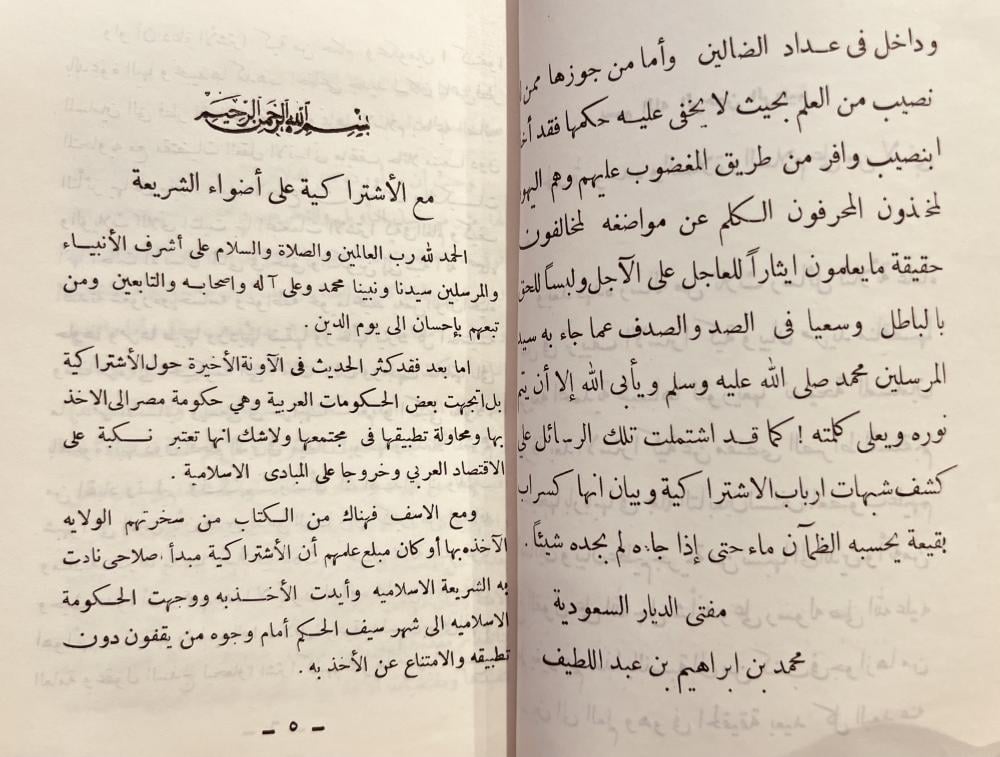 وداخل فى عداد الضالين وأما من جوزها ممن
نصيب من العلم بحيث لا يخفى عليه حكمها فقد
ابنصيب وافر من طريق المغضوب عليهم وهم
لمخذون المحرفون الكلم عن مواضعه لمخالفون
حقيقة ما يعلمون ايثاراً للعاجل على الآجل ولبساً للحق
بالباطل وسعيا فى الصد والصدف عما جاء به سيد
المرسلين محمد صلى الله عليه وسلم ويأبى الله إلا أن يتم
نوره ويعلى كلمته ! كما قد اشتملت تلك الرسائل على
كشف شبهات ارباب الاشتراكية وبيان انها كسراب
بقيعة يحسبه الظمآن ماء حتى إذا جاءه لم يجده شيئاً .
مفتى الديار السعودية
محمد بن ابراهيم بن عبد اللطيف
بسم الله الرحمن الرحيم
مع الأشتراكية على أضواء الشريعة
الحمد لله رب العالمين والصلاة والسلام على أشرف الأنبياء
والمرسلين سيدنا ونبينا محمد وعلى آله واصحابه والتابعين ومن
تبعهم بإحسان الى يوم الدين .
اما بعد فقد كثر الحديث فى الآونة الأخيرة حول الأشتراكية
بل اتجهت بعض الحكومات العربية وهي حكومة مصر الى الاخذ
بها ومحاولة تطبيقها فى مجتمعها ولاشك انها تعتبر نكبة على
الاقتصاد العربي وخروجا على المبادى الاسلامية .
ومع الاسف فهناك من الكتاب من سخرتهم الولايه
الآخذه بها أو كان مبلغ علمهم أن الأشتراكية مبدأ صلاحى نادت
به الشريعة الاسلاميه وأيدت الأخذ به ووجهت الحكومة
الاسلاميه الى شهر سيف الحكم أمام وجوه من يقفون دون
تطبيقه والامتناع عن الأخذ به .
– ٥ –